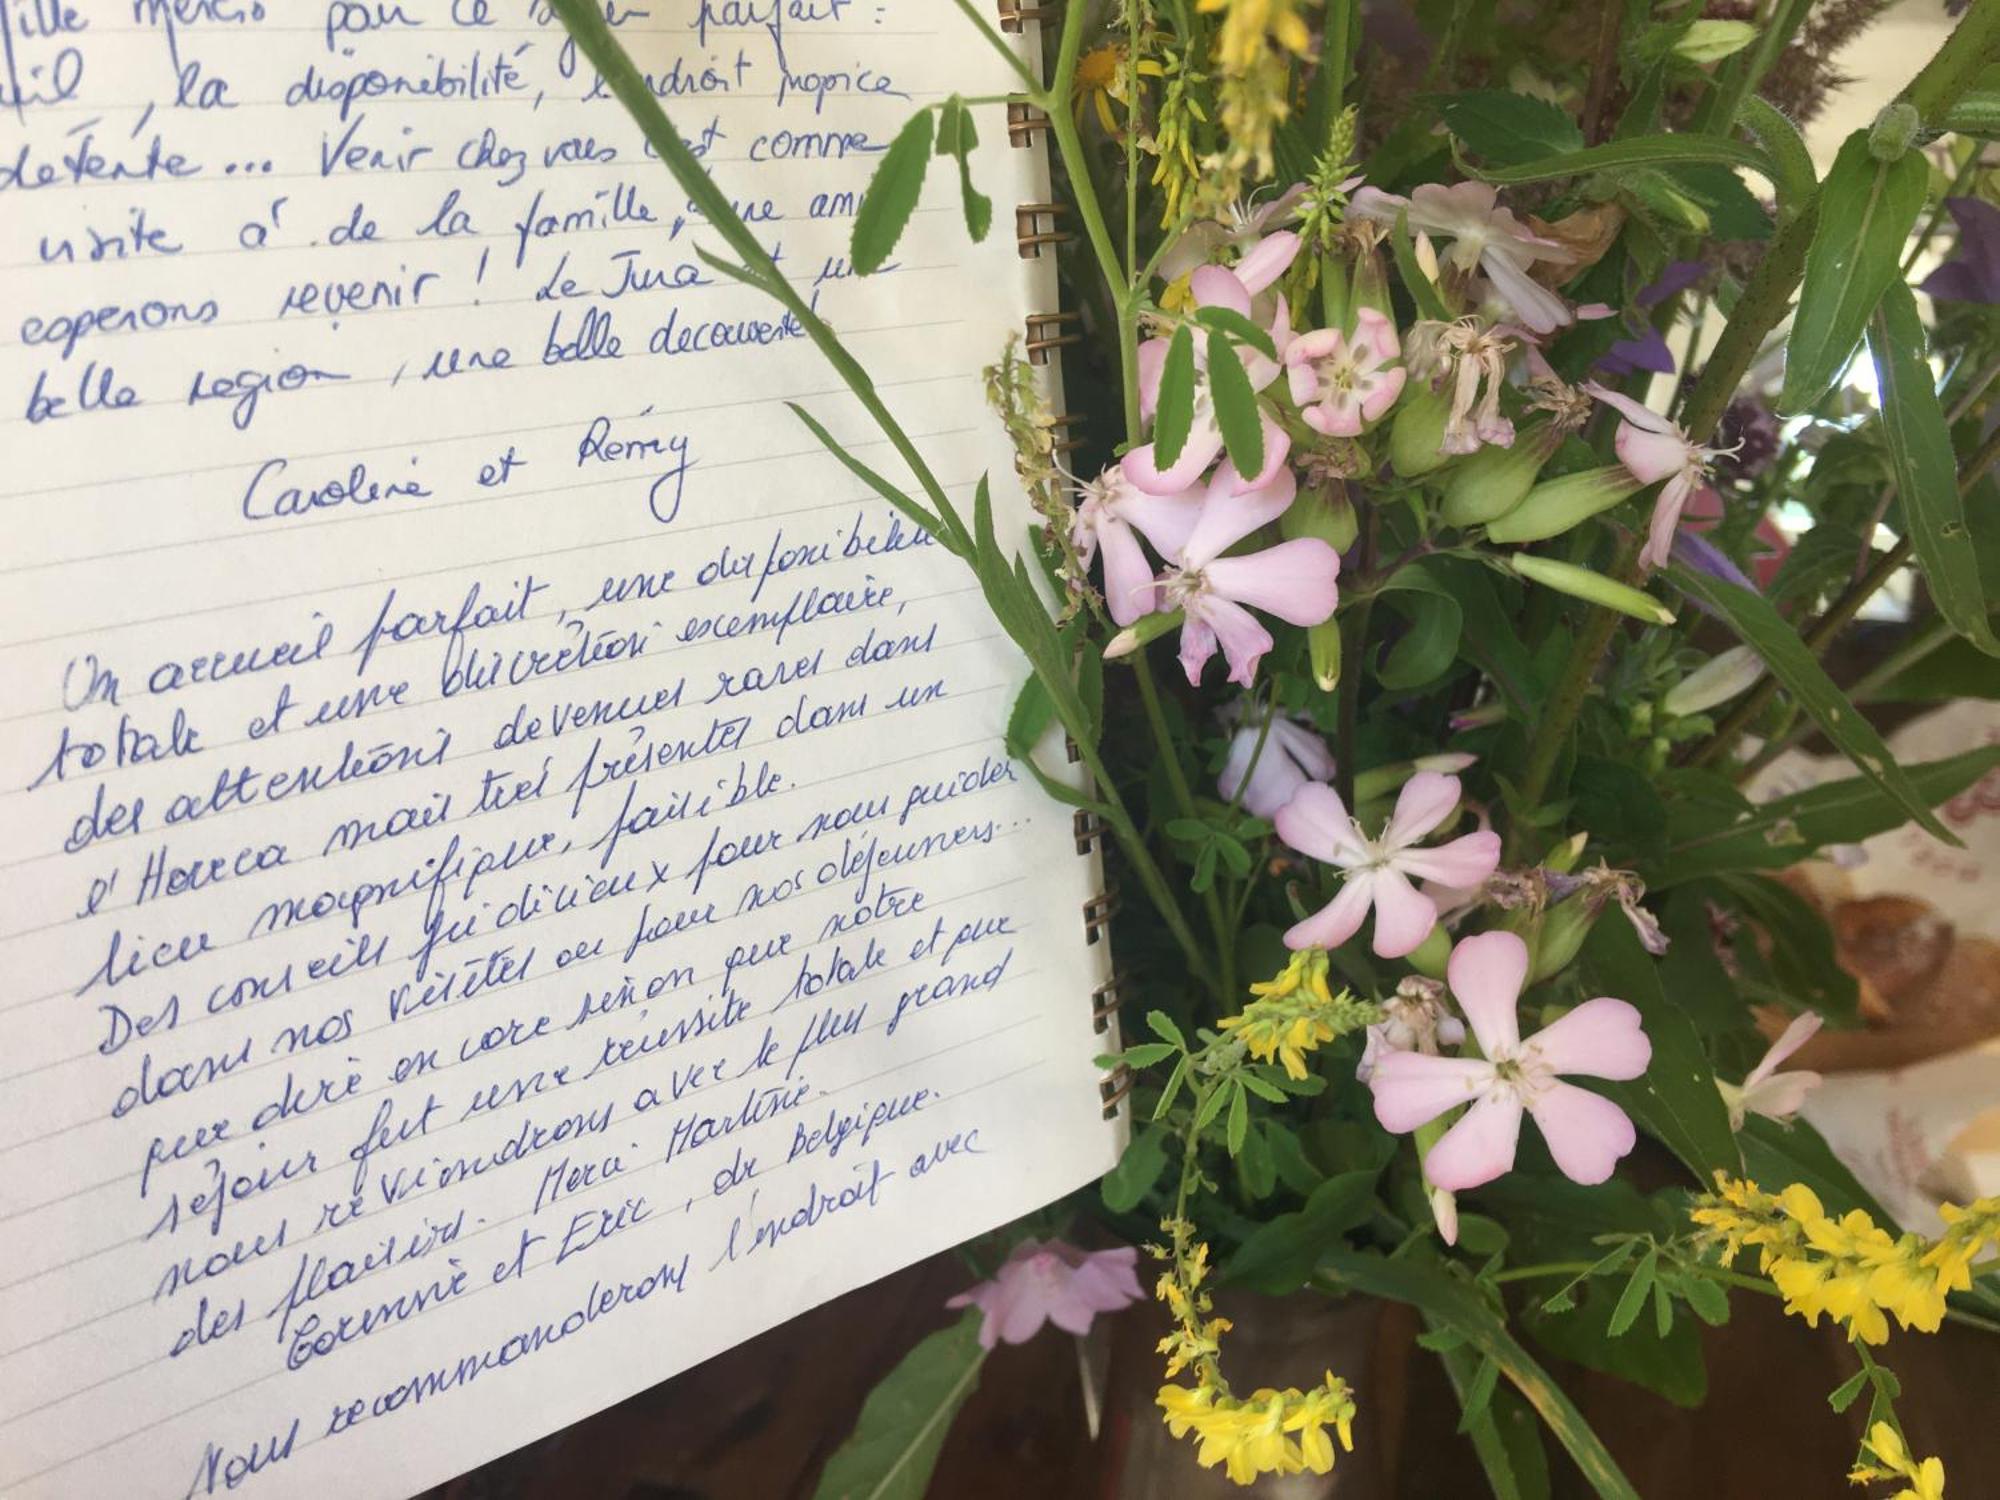 mercis pour ce parfait :
, la disponibilité, propice
détente... Venir chez vous c'est comme
visite à de la famille, une
esperons revenir ! Le Jura est une
belle region, une belle decouverte!
Caroline et Rémy
Un accueil parfait, une disponibilité
totale et une discrétion exemplaire,
des attentions devenues rares dans
l'Horeca mais très présentes dans un
lieu magnifique, paisible.
Des conseils judicieux pour nous guider
dans nos visites ou pour nos déjeuners...
que dire encore sinon que notre
séjour fut une réussite totale et que
nous reviendrons avec le plus grand
des plaisirs. Merci Martine.
Corinne et Eric, de Belgique.
Nous recommanderons l'endroit avec